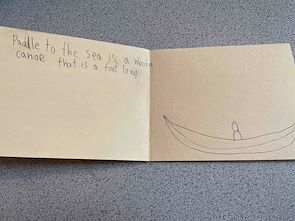 Paddle to the Sea is a wooden
canoe that is a foot long